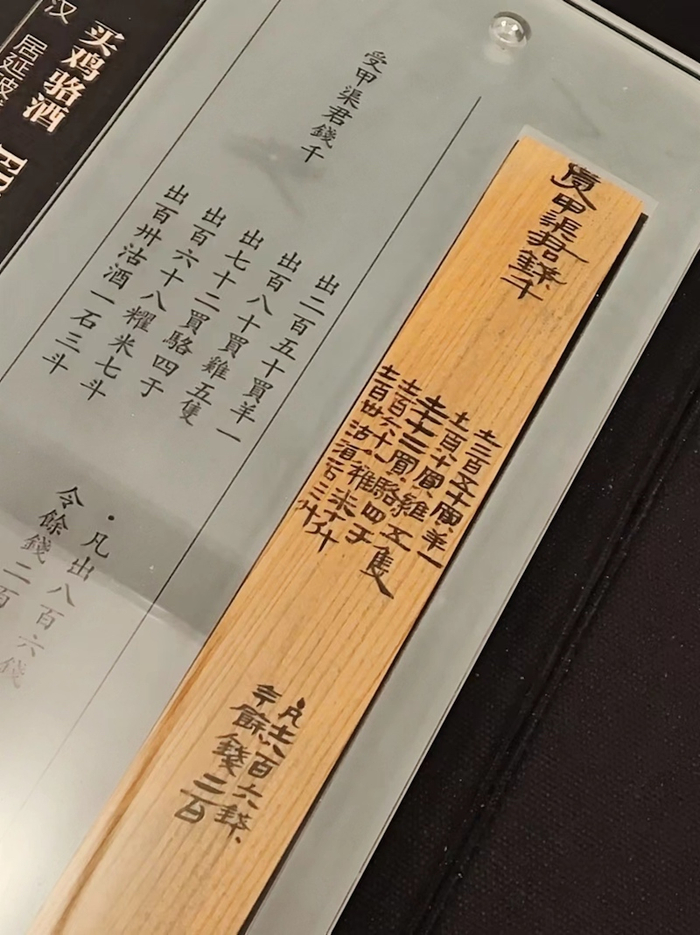 买鸡骆酒
汉 居延
受甲渠君錢千
出二百五十買羊一
出百八十買雞五隻
出七十二買駱四于
出百六十八糴米七斗
出百卅沽酒一石三斗
·凡出八百六錢
令餘錢二百
受甲渠君錢千
出二百五十買羊一
出百八十買雞五隻
出七十二買駱四于
出百六十八糴米七斗
出百卅沽酒一石三斗
·凡出八百六錢
今餘錢二百